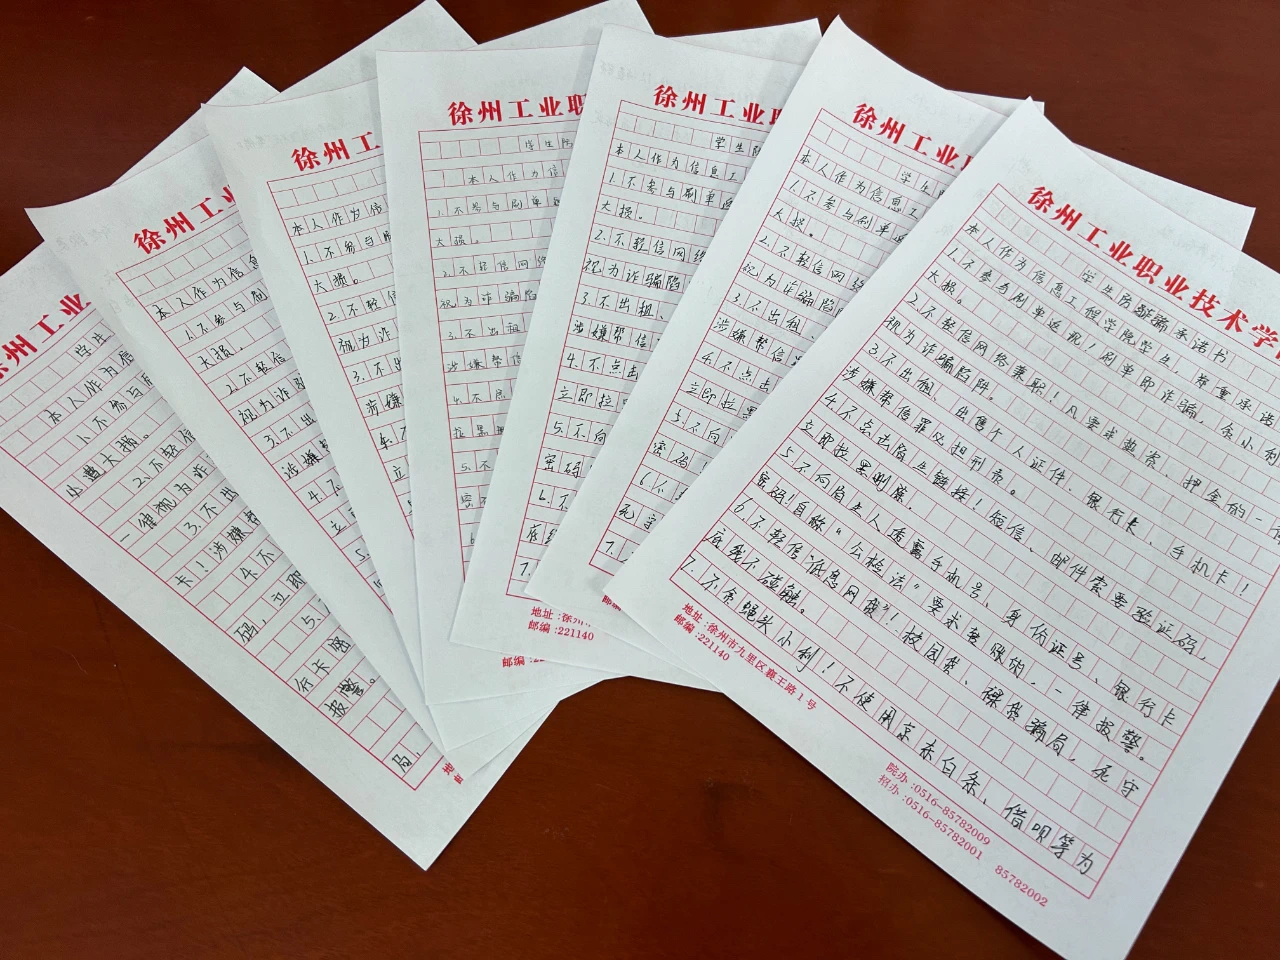 徐州工业职业技术学
学生防诈骗承诺书
本人作为信息工程学院学生，郑重承诺
1.不参与刷单返现！刷单即诈骗，贪小利
大损。
2.不轻信网络兼职！凡要求垫资、押金的一
视为诈骗陷阱。
3.不出租、出售个人证件、银行卡、手机卡！
涉嫌帮信罪必担刑责。
4.不点击陌生链接！短信、邮件索要验证码，
立即拉黑删除。
5.不向陌生人透露手机号、身份证号、银行卡
密码！自称“公检法”要求转账的，一律报警。
6.不轻信“低息网贷”！校园贷、裸贷骗局，死守
底线不碰触。
7.不贪蝇头小利！不使用京东白条、借呗等为
地址：徐州市九里区襄王路1号
邮编：221140
院办：0516-85782009
招办：0516-85782001 85782002
徐州工业职
学生防
本人作为信息工
1.不参与刷单返
大损。
2.不轻信网络
视为诈骗陷
3.不出租
涉嫌帮信罪
4.不点击
立即拉黑
5.不向
密码！
6.不
死守
7.
徐州工业职
学生防
本人作为信息工
1.不参与刷单返
大损。
2.不轻信网络
视为诈骗陷
3.不出租、
涉嫌帮信
4.不点击
立即拉
5.不向
密码
6.不
底线
7.
地址：徐州
邮编：221140
徐州工业职
学生防
本人作为信
1.不参与刷单返
大损。
2.不轻信网络
视为诈骗陷
3.不出租
涉嫌帮信
4.不点
拉黑删
5.不
密
邮编：22
徐州工
本人作为信
1.不参与
大损。
2.不轻信
视为诈
3.不出
涉嫌
4.不
立
徐州工
本人作为信息
1.不参与刷
大损。
2.不轻信
视为诈骗
3.不出
涉嫌
4.不
立
5.
徐州工业
学生
本人作为信
1.不参与
小贪大损。
2.不轻信
一律视为诈
3.不出
卡！涉嫌帮
4.不
码，立即
5.
行卡密
报警。
局，